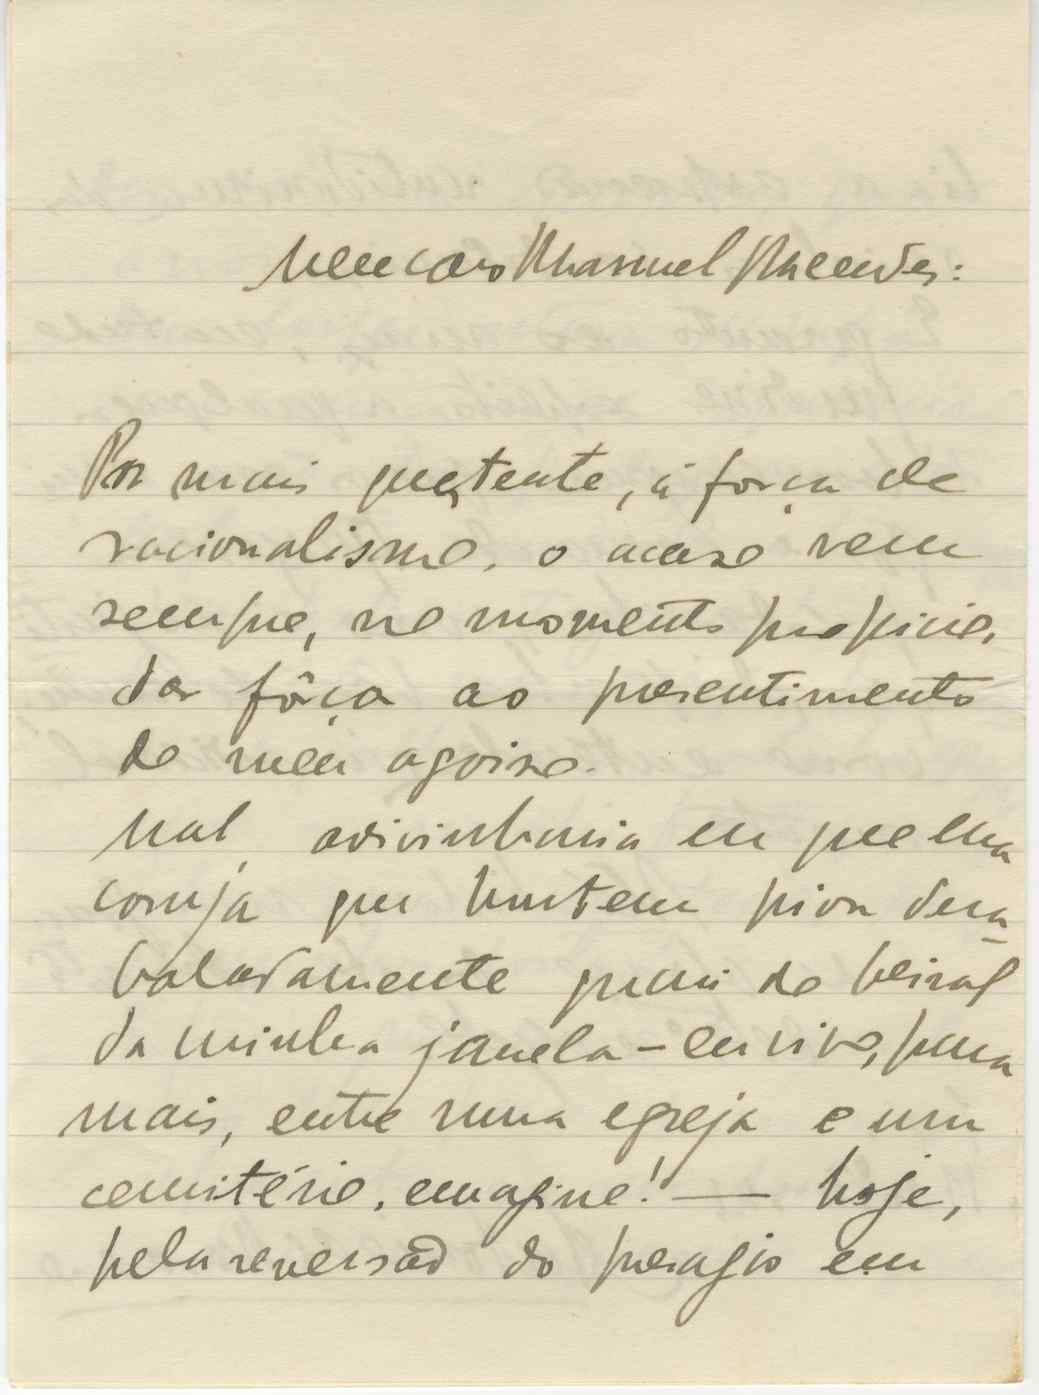 Meu caro Manuel Mendes:
Por mais que tente, á força de
racionalismo, o acaso vem
sempre, no momento propicio,
dar fôrça ao presentimento
do meu agoiro.
Mal adivinharia eu que essa
coruja que hontem piou desa-
baladamente quasi do beiral
da minha janela – eu vivo, pra
mais, entre uma egreja e um
cemitério, emagine! — hoje,
pela reversão do presagio em